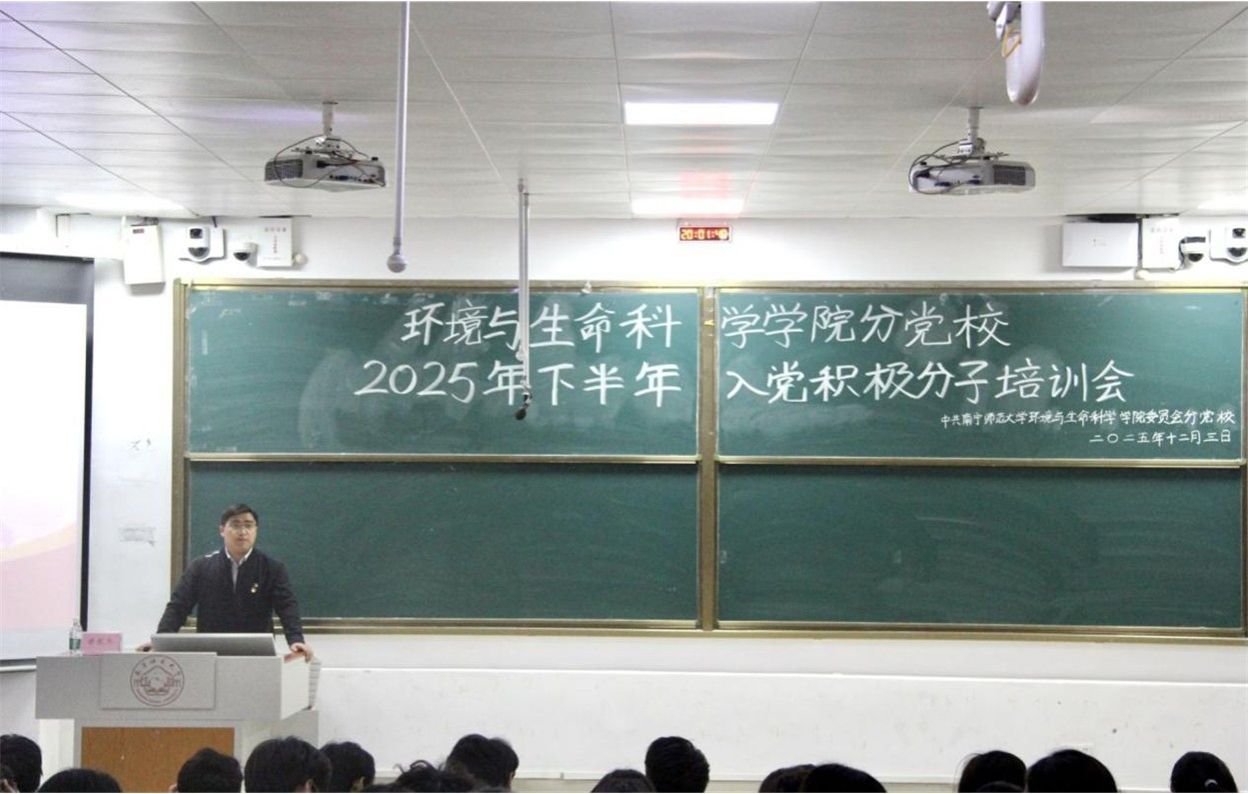 20:01:48
环境与生命科学学院分党校
2025年下半年入党积极分子培训会
中共南宁师范大学环境与生命科学学院委员会分党校
二〇二五年十二月三日